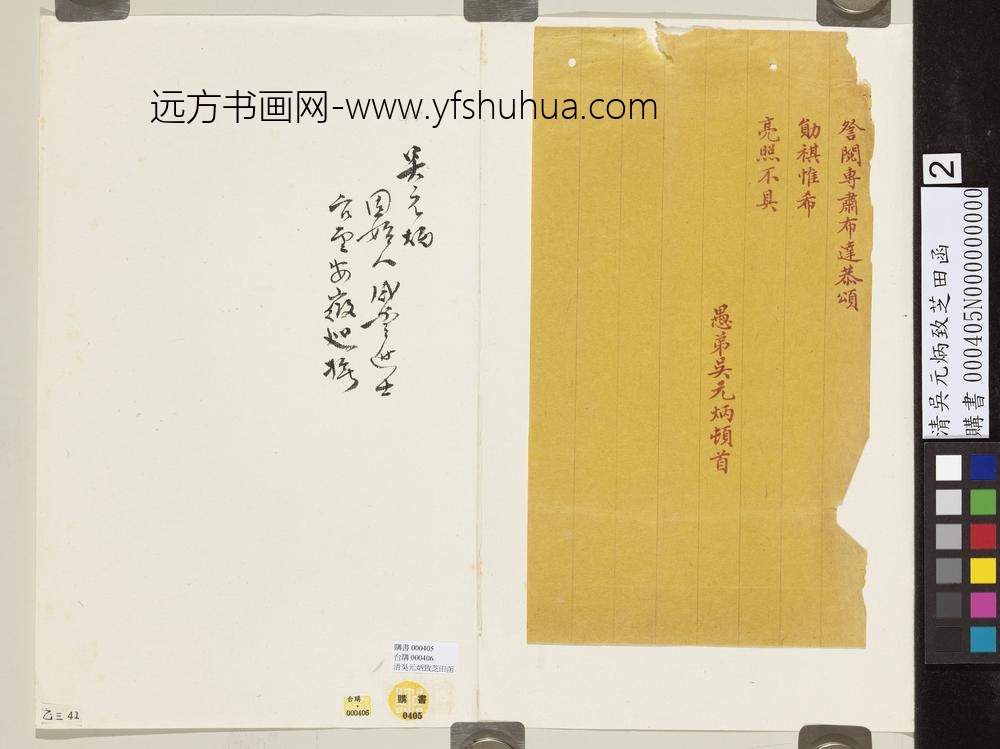 远方书画网-www.yfshuhua.com
詧閱專肅布達恭頌
勛祺惟希
亮照不具
愚弟吳元炳頓首
吳元炳
固始人咸豐進士
官至安徽巡撫
2
清吳元炳致芝田函
購書 000405N000000000
購書 000405
台購 000406
清吳元炳致芝田函
台購
000406
購書
0405
乙三 41